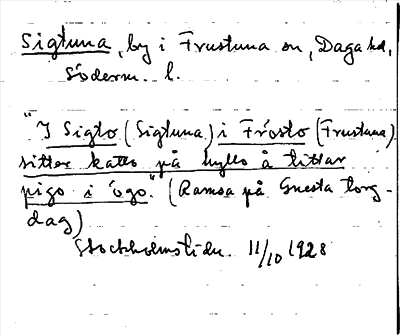 Sigtuna, by i Frustuna sn, Daga hd,
Söderm. l.
"I Sigto (Sigtuna) i Frosto (Frustuna)
sitter katto på hyllo å tittar
pigo i ögo." (Ramsa på Gnesta torg-
dag)
Stockholmstidn. 11/10 1928